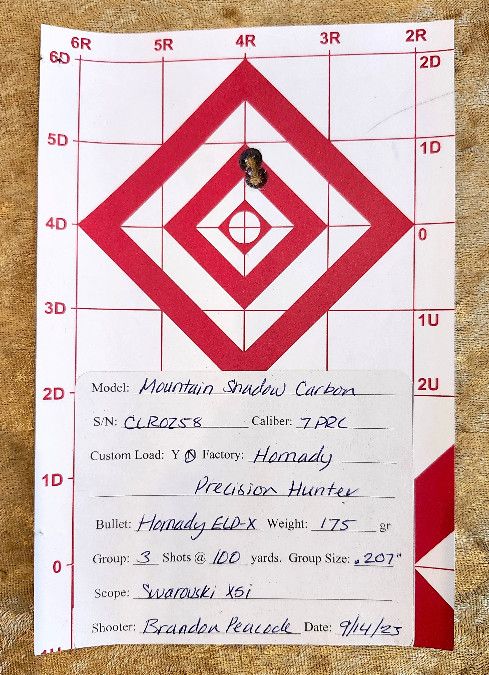 6R 5R 4R 3R 2R
6D 2D
5D 1D
4D 0
3D 1U
2D 2U
1D
0
1U
Model: Mountain Shadow Carbon
S/N: CLR0258 Caliber: 7 PRC
Custom Load: Y N Factory: Hornady
Precision Hunter
Bullet: Hornady ELD-X Weight: 175 gr
Group: 3 Shots @ 100 yards. Group Size: .207"
Scope: Swarovski X5i
Shooter: Brandon Peacock Date: 9/14/23